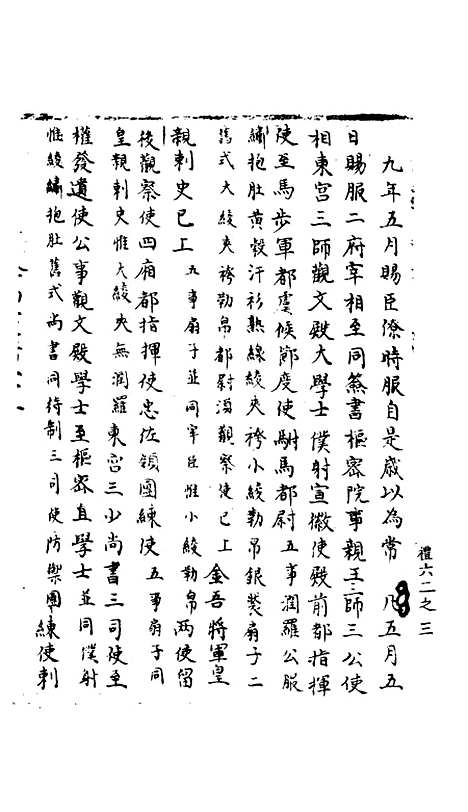 九年五月賜臣僚時服自是歲以為常 凡五月五
日賜服二府宰相至同簽書樞密院事親王三師三公使
相東宮三師觀文殿大學士僕射宣徽使殿前都指揮
使至馬步軍都虞候節度使駙馬都尉 五事潤羅公服
繡抱肚黃縠汗衫熟線綾夾袴小綾勒帛銀裝扇子二
舊式大綾夾袴勒帛都尉須觀察使已上 金吾將軍皇
親刺史已上 五事扇子並同宰臣惟小綾勒帛 兩使留
後觀察使四廂都指揮使忠佐領團練使 五事扇子同
皇親刺史惟大綾夾無潤羅 東宮三少尚書三司使至
權發遣使公事觀文殿學士至樞密直學士 並同僕射
惟綾繡抱肚舊式尚書同待制 三司使防禦團練使刺
禮六二之三